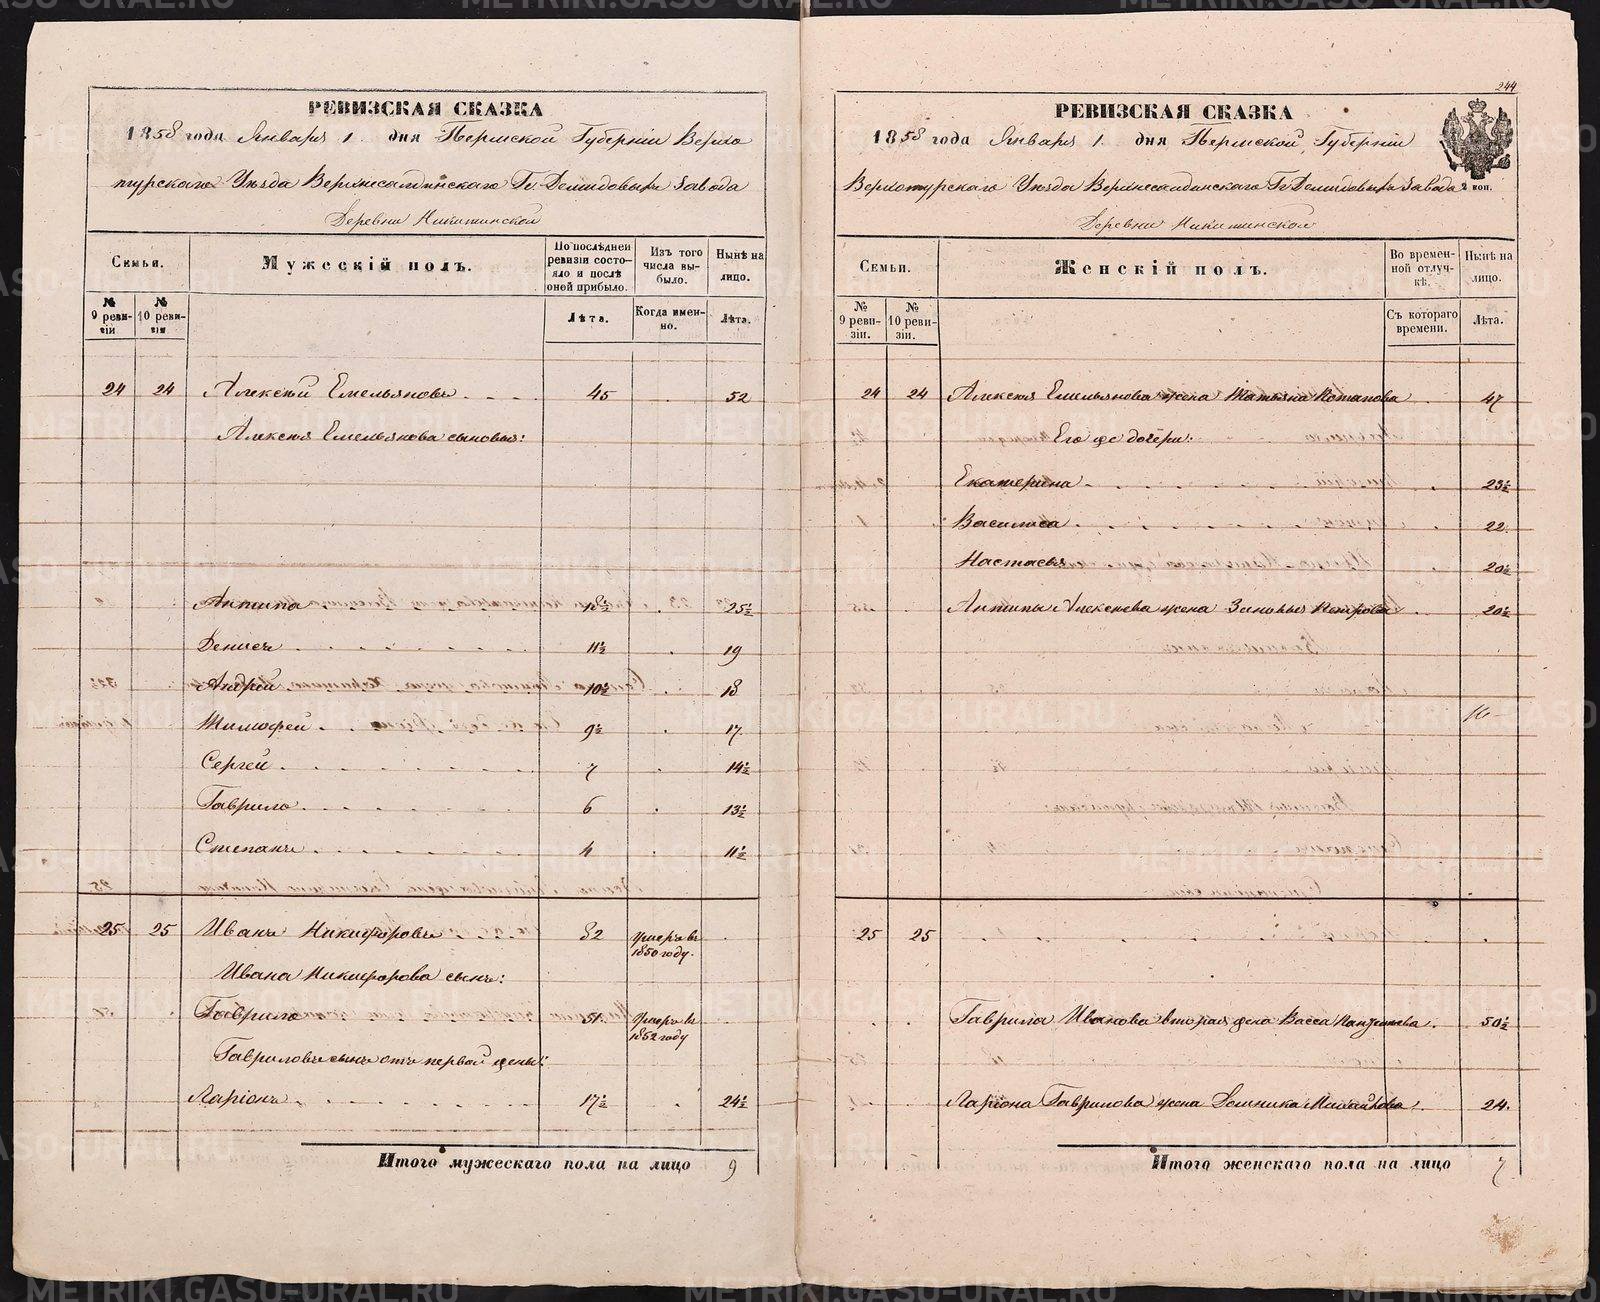 РЕВИЗСКАЯ СКАЗКА
1858 года Января 1 дня Пермской Губерніи Верхо
турскаго Уѣзда Верхнесалдинскаго Гг Демидовыхъ завода
Деревни Никитинской
Семьи.
Мужескій полъ.
По послѣдней ревизіи состояло и послѣ оной прибыло.
Изъ того числа выбыло.
Нынѣ на лицо.
№ 9 ревизіи
№ 10 ревизіи
Лѣта.
Когда именно.
Лѣта.
24 24 Алексѣй Емельяновъ 45 52
Алексѣя Емельянова сыновья:
Антипа 18½ 25½
Денисъ 11½ 19
Андрей 10½ 18
Тимофей 9½ 17
Сергей 7 14½
Гаврило 6 13½
Степанъ 4 11½
25 25 Иванъ Никифоровъ 82 умеръ въ 1850 году.
Ивана Никифорова сынъ:
Гаврило 51 умеръ въ 1852 году
Гавриловъ сынъ отъ первой жены:
Ларіонъ 17½ 24½
Итого мужескаго пола на лицо 9
244
РЕВИЗСКАЯ СКАЗКА
1858 года Января 1 дня Пермской Губерніи
Верхотурскаго Уѣзда Верхнесалдинскаго Гг Демидовыхъ завода
2 коп.
Деревни Никитинской
Семьи.
Женскій полъ.
Во временной отлучкѣ.
Нынѣ на лицо.
№ 9 ревизіи.
№ 10 ревизіи.
Съ котораго времени.
Лѣта.
24 24 Алексѣя Емельянова жена Татьяна Потапова 47
Его же дочери:
Екатерина 23½
Василиса 22
Настасья 20½
Антипы Алексѣева жена Зиновья Петрова 20½
25 25
Гаврила Иванова вторая жена Васса 50½
Ларіона Гаврилова жена Домника 24
Итого женскаго пола на лицо 7
METRIKI.GASO-URAL.RU